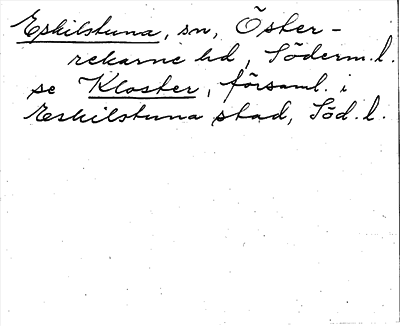 Eskilstuna, sn, Öster-
rekarne hd, Söderm.l.
se Kloster, församl. i
Eskilstuna stad, Söd.l.